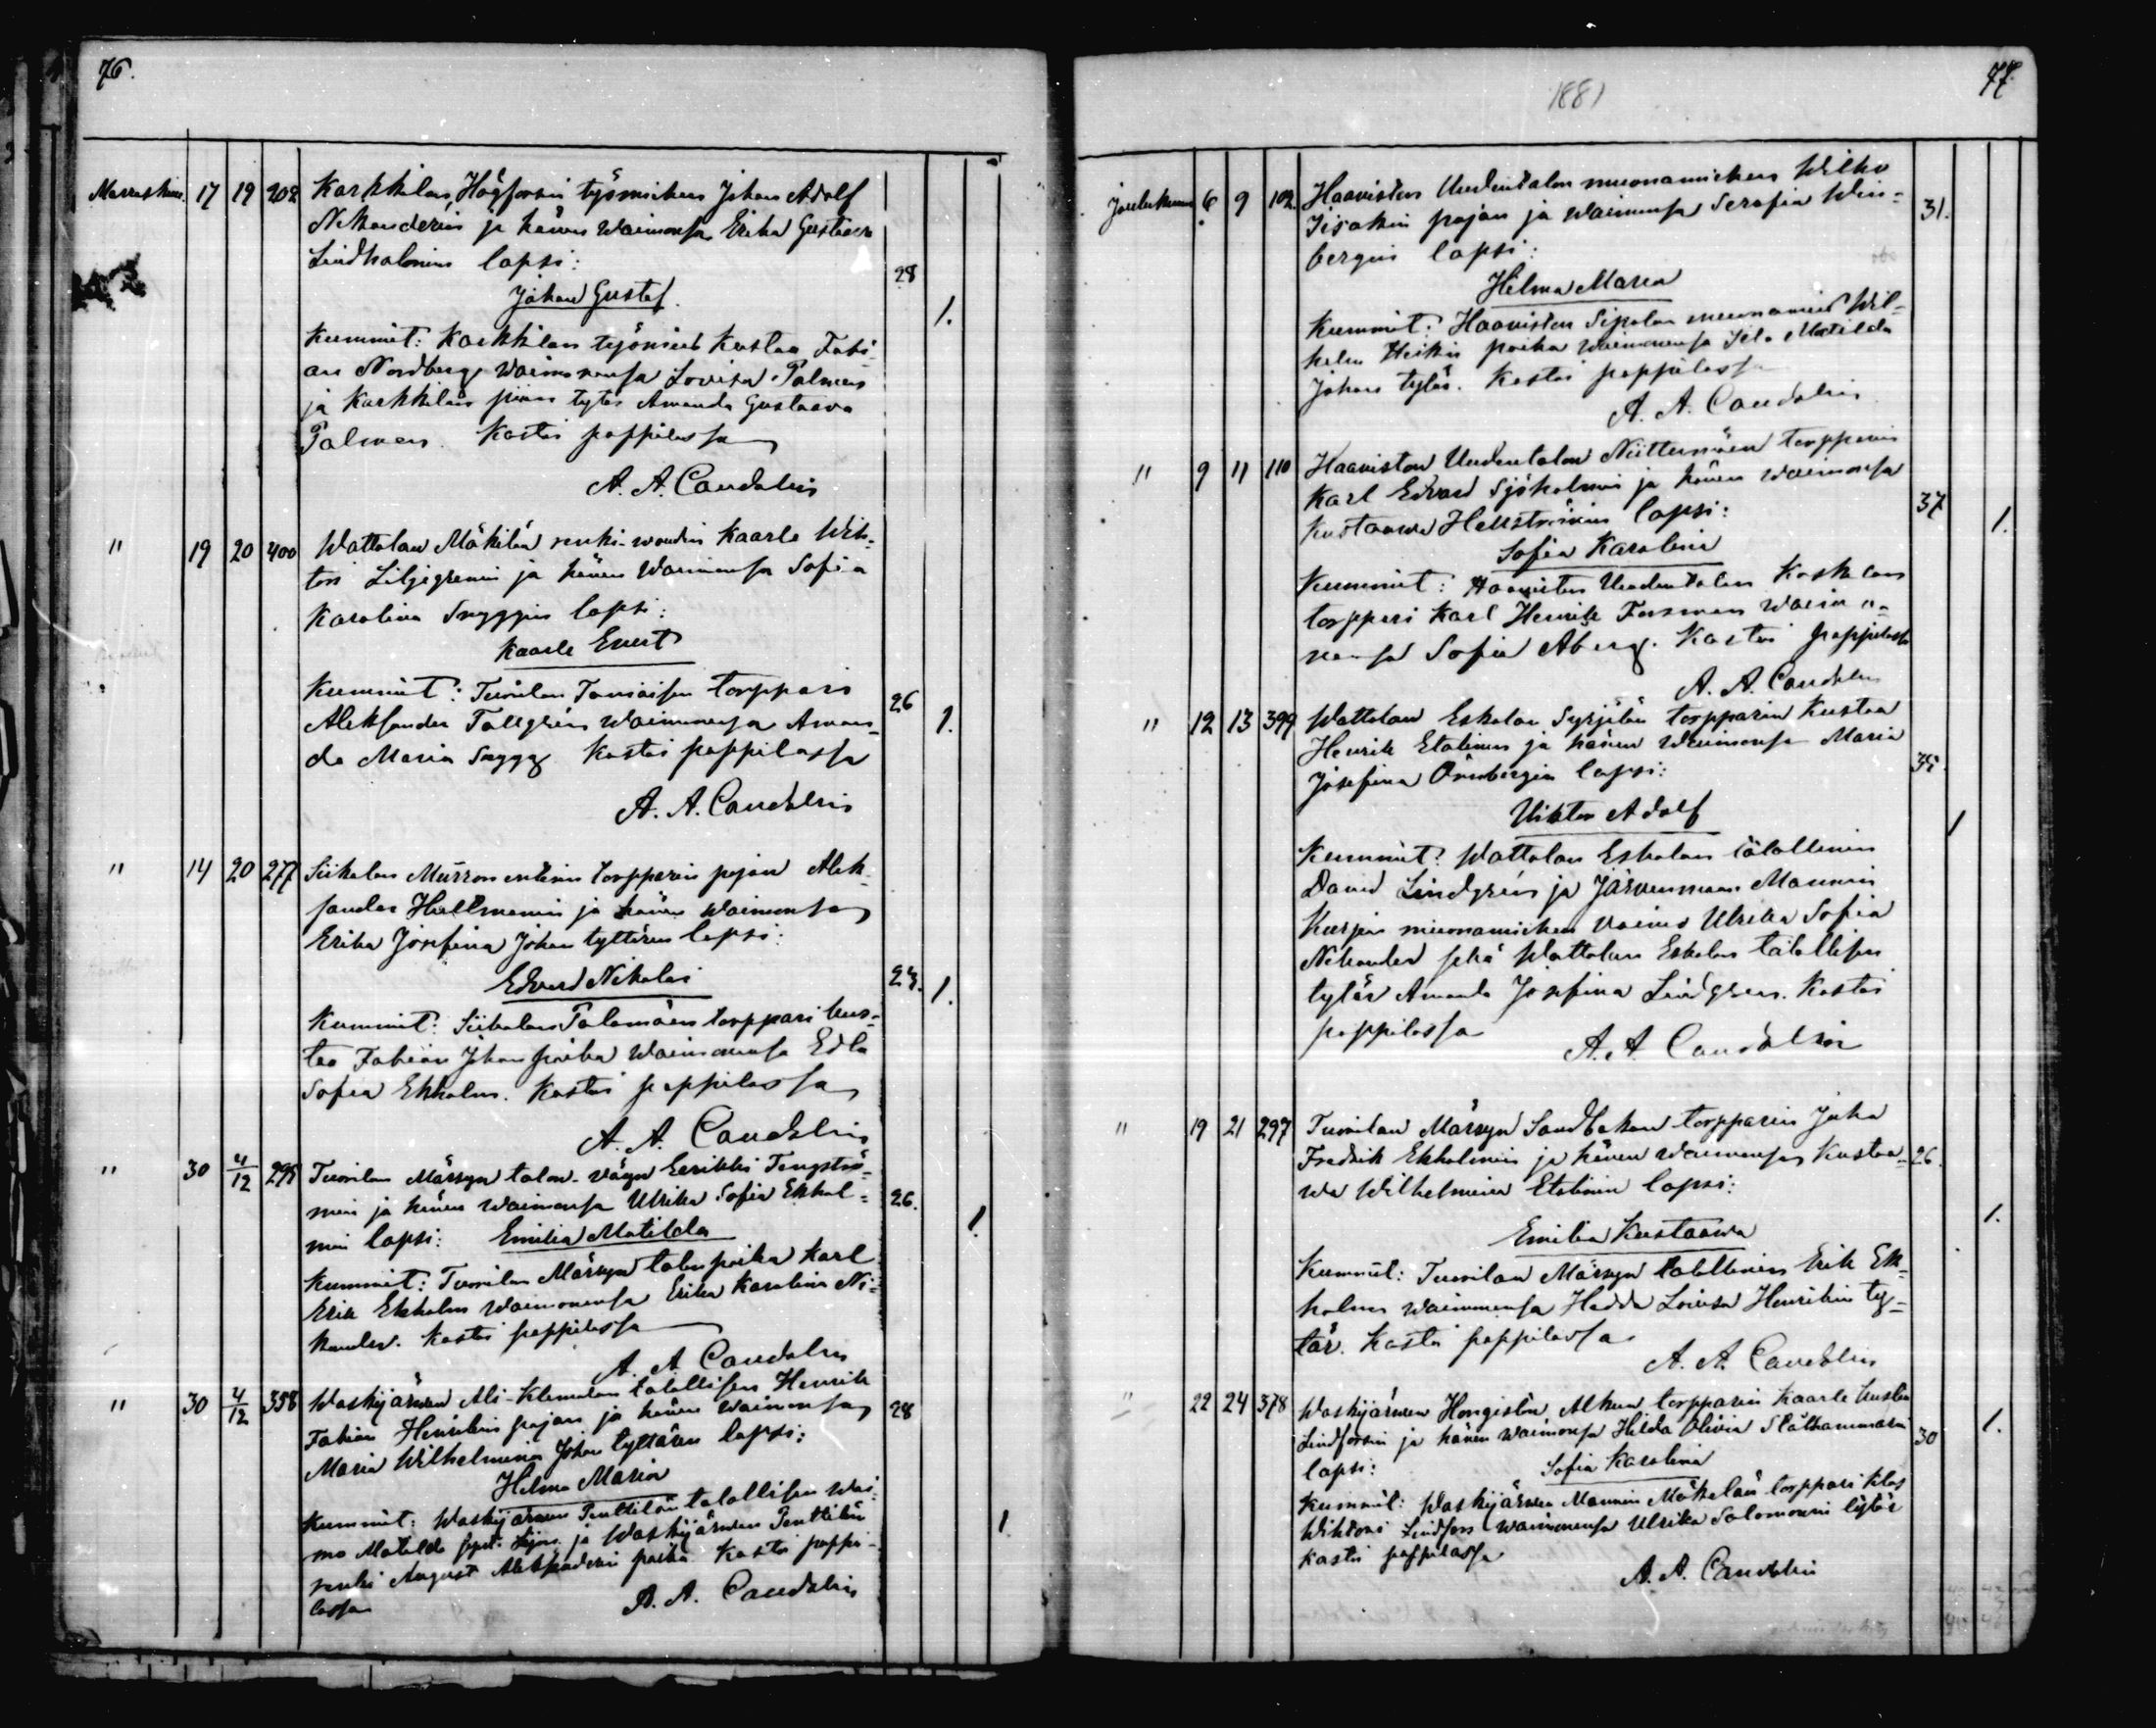 76.
Marraskuu 17 19 202 Karkkilan Högforsin työmiehen Johan Adolf
Nikanderin ja hänen waimonsa Erika Gustaava
Lindholmin lapsi:
28
Johan Gustaf.
1.
Kummit: Karkkilan työmies Kustaa Fabi-
an Nordberg waimonensa Lovisa Palmen
ja Karkkilan piian tytär Amanda Gustaava
Palmen. Kasti pappilassa
A. A. Candolin
" 19 20 400 Wattolan Mäkilän renki-woudin Kaarle Wih-
tori Liljegrenin ja hänen Waimonsa Sofia
Karolina Snyggin lapsi:
Kaarle Evert
Kummit: Tuorilan torppari
26
Aleksander Tallgren waimonensa Aman-
1.
da Maria Snygg Kasti pappilassa
A. A. Candolin
" 14 20 277 Siikalan torpparin pojan Alek-
sander Hellmanin ja hänen waimonsa
Erika Josefina Johan tyttären lapsi:
Edvard Nikolai
23. 1.
Kummit: Siikalan Palomäen torppari Kus-
taa Fabian Johan poika waimonensa Edla
Sofia Ekholm. Kasti pappilassa
A. A. Candolin
" 30 4/12 295 Tuorilan Märsyn talon-vävyn Eerikki Tengströ-
min ja hänen waimonsa Ulrika Sofia Ekhol-
26.
min lapsi: Emilia Matilda
1.
Kummit: Tuorilan Märsyn talon poika Karl
Erik Ekholm waimonensa Erika Karolina Ni-
kander. Kasti pappilassa
A. A. Candolin
" 30 4/12 358 Waskijärwen Ali-Klemelan talollisen Henrik
28
Fabian Henrikin pojan ja hänen waimonsa
Maria Wilhelmina Johan tyttären lapsi:
Helma Maria
Kummit: Waskijärwen Penttilän talollisen wai-
1.
mo Matilda ja Waskijärwen Penttilän
renki August Aleksanderin poika Kasti pappi-
lassa
A. A. Candolin
1881
77.
Joulukuun 6 9 102. Haaviston Uudentalon muonamiehen Wilho
31.
Iisakin pojan ja waimonsa Serafia Win-
bergin lapsi:
Helma Maria
Kummit: Haaviston Sipolan muonamies Wil-
helm Heikin poika waimonensa Matilda
Johan tytär. Kasti pappilassa
A. A. Candolin
" 9 11 110 Haaviston Uudentalon Niittumäen torpparin
Karl Edvard Sjöholmin ja hänen waimonsa
37
1.
Kustaawa Hellströmin lapsi:
Sofia Karolina
Kummit: Haaviston Uudentalon Koskelan
torppari Karl Henrik Forsman waimo-
nensa Sofia Åberg. Kasti pappilassa
A. A. Candolin
" 12 13 399 Wattolan Eskolan Syrjälän torpparin Kustaa
Henrik Etolinin ja hänen waimonsa Maria
35.
Josefina Örnbergin lapsi:
Viktor Adolf
1
Kummit: Wattolan Eskolan talollinen
David Lindgrén ja Järvenmaan Mannin
muonamiehen vaimo Ulrika Sofia
Nikander sekä Wattolan Eskolan talollisen
tytär Amanda Josefina Lindgren. Kasti
pappilassa
A. A. Candolin
" 19 21 297 Tuorilan Märsyn Sandbakan torpparin Juha
Fredrik Ekholmin ja hänen waimonsa Kustaa-
26.
wa Wilhelmina Etolinin lapsi:
1.
Emilia Kustaawa
Kummit: Tuorilan Märsyn talollinen Erik Ek-
holm waimonensa Hedda Lovisa Henrikin ty-
tär. Kasti pappilassa
A. A. Candolin
" 22 24 378 Waskijärwen Hongiston Alhon torpparin Kaarle Kustaa
1.
Lindforsin ja hänen waimonsa Hilda Olivia Stålhammarin
30
lapsi:
Sofia Karolina
Kummit: Waskijärwen Mannin Mäkelän torppari Klas
Wihtori Lindfors waimonensa Ulrika Salomonin tytär
Kasti pappilassa
A. A. Candolin